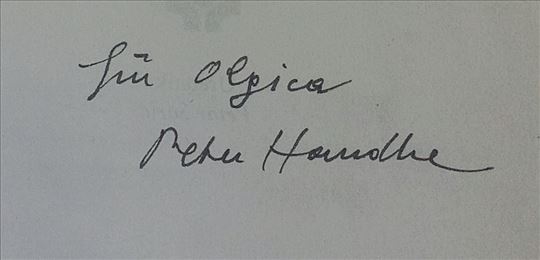 für Olgica
Peter Handke